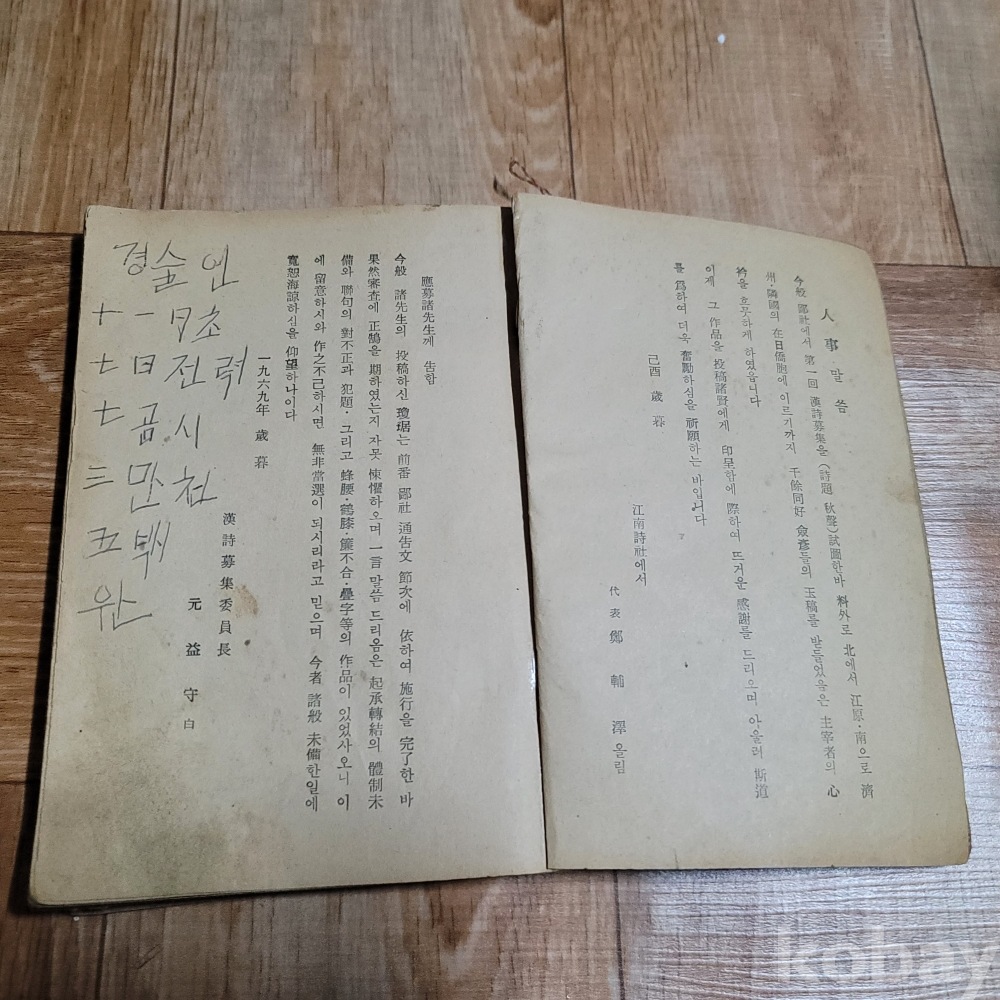 人事 말씀
今般 鄙社에서 第一回 漢詩募集을 (詩題 秋聲) 試圖한바 料外로 北에서 江原·南으로 濟
州·隣國의 在日僑胞에 이르기까지 千餘同好 僉彥들의 玉稿를 받들었음은 主宰者의 心
衿을 흐뭇하게 하였읍니다
이제 그 作品을 投稿諸賢에게 印呈함에 際하여 뜨거운 感謝를 드리으며 아울러 斯道
를 爲하여 더욱 奮勵하심을 祈願하는 바입니다
己酉 歲暮
江南詩社에서
代表 鄭輔澤 올림
應募諸先生께 告함
今般 諸先生의 投稿하신 瓊琚는 前番 鄙社 通告文 節次에 依하여 施行을 完了한 바
果然審査에 正鵠을 期하였는지 자못 悚懼하오며 一言 말씀 드리옴은 起承轉結의 體制未
備와 聯句의 對不正과 犯題·그리고 蜂腰·鶴膝·簾不合·疊字等의 作品이 있었사오니 이
에 留意하시와 作之不己하시면 無非當選이 되시리라고 믿으며 今者 諸般 未備한일에
寬恕海諒하심을 仰望하나이다
一九六九年 歲暮
漢詩募集委員長
元益守 白
경술인
十一月초
七日전력
七곰시
三만천
五백
원